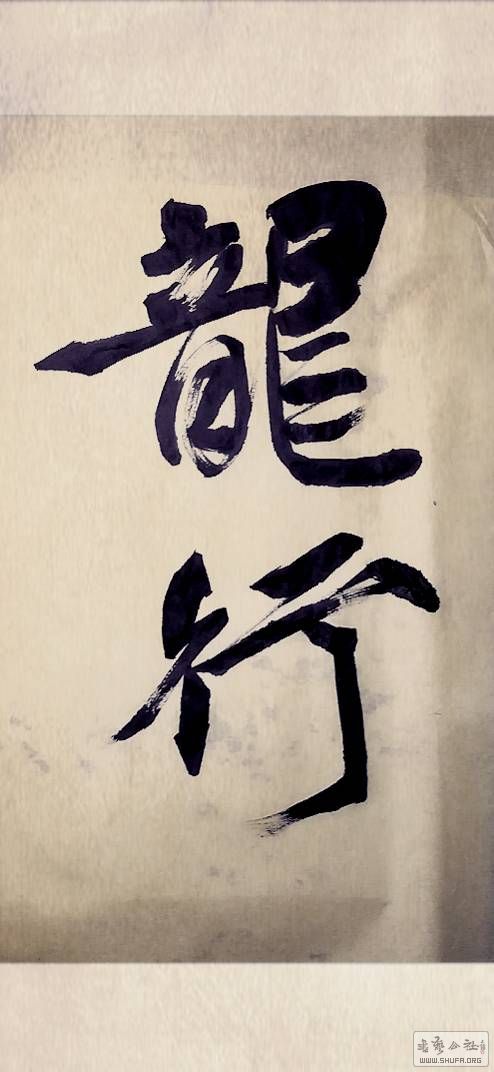 龍行
書藝公社
WWW.SHUFA.ORG